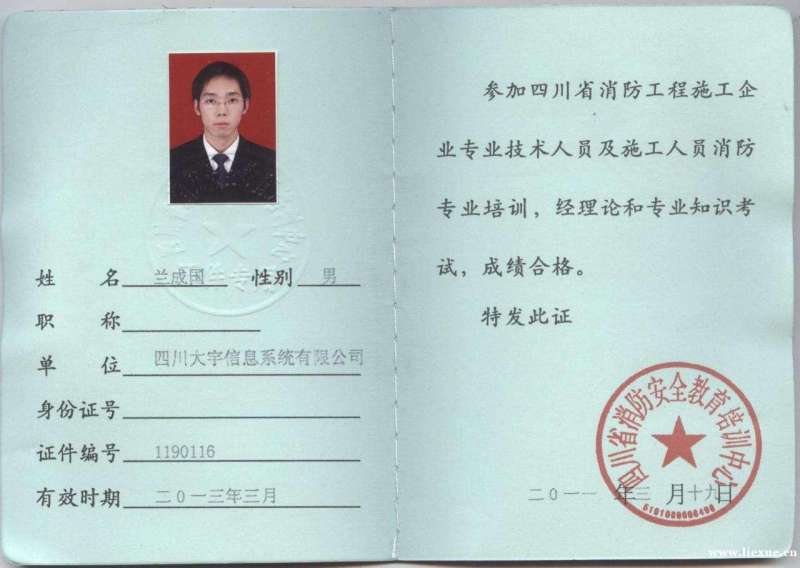 姓 名 兰成国 性别 男
职 称
单 位 四川大宇信息系统有限公司
身份证号
证件编号 1190116
有效时期 二0一三年三月
参加四川省消防工程施工企
业专业技术人员及施工人员消防
专业培训，经理论和专业知识考
试，成绩合格。
特发此证
四川省消防安全教育培训中心
二0一一年三月十九日
www.liexue.cn